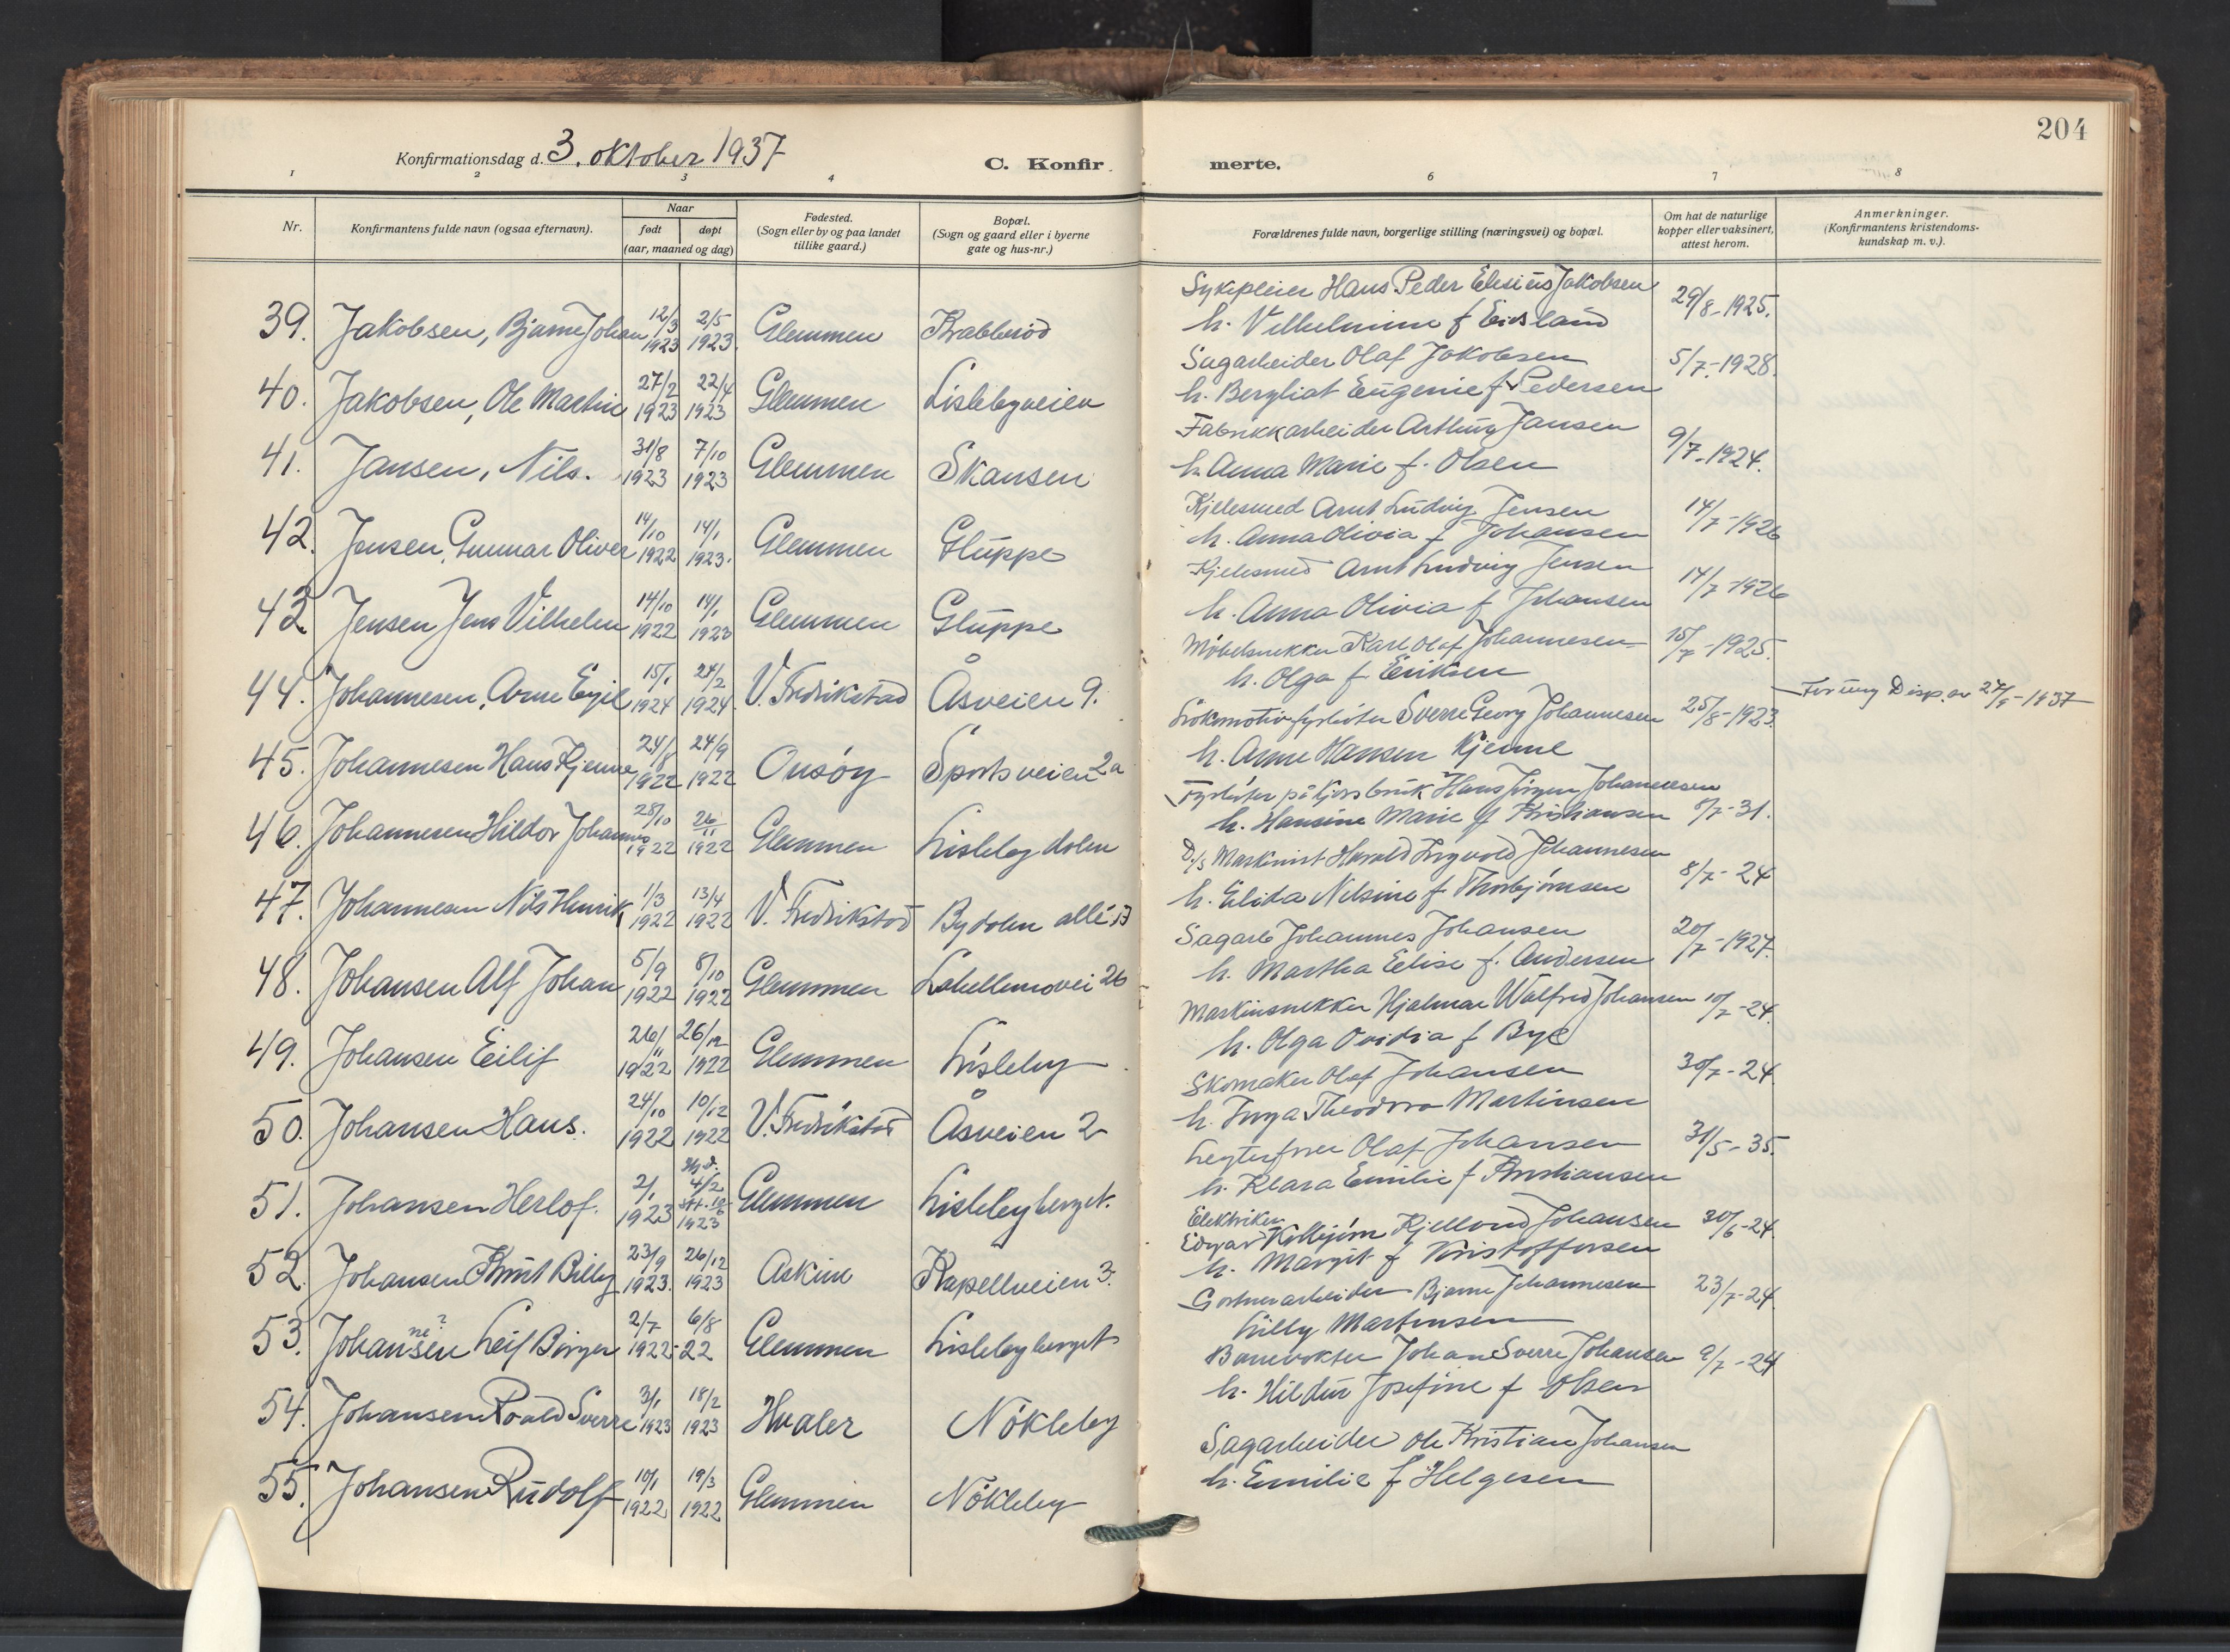 204
Konfirmationsdag d. 3. oktober 1937
C. Konfir merte.
1 2 3 4 6 7 8
Nr.
Konfirmantens fulde navn (ogsaa efternavn).
Naar
født døpt
(aar, maaned og dag)
Fødested.
(Sogn eller by og paa landet
tillike gaard.)
Bopæl.
(Sogn og gaard eller i byerne
gate og hus-nr.)
Forældrenes fulde navn, borgerlige stilling (næringsvei) og bopæl.
Om hat de naturlige
kopper eller vaksinert,
attest herom.
Anmerkninger.
(Konfirmantens kristendoms-
kundskap m. v.).
39. Jakobsen, Bjarne Johan 12/3 1923 2/5 1923. Glemmen Krabberød
Sykepleier Hans Peder Elesius Jakobsen 29/8-1925.
h. Vilhelmine f Eidsland
40. Jakobsen, Ole Martin 27/2 1923 22/4 1923 Glemmen Lislebyveien
Sagarbeider Olaf Jakobsen 5/7-1928.
h. Bergliot Eugenie f Pedersen
41. Jansen, Nils. 31/8 1923 7/10 1923 Glemmen Skansen
Fabrikkarbeider Arthur Jansen 9/7-1924.
h. Anna Marie f. Olsen
42. Jensen, Gunnar Oliver 14/10 1922 14/1 1923. Glemmen Gluppe
Kjelesmed Arnt Ludvig Jensen 14/7-1926
h. Anna Olivia f Johansen
43. Jensen Jens Vilhelm 14/10 1922 14/1 1923 Glemmen Gluppe
Kjelesmed Arnt Ludvig Jensen 14/7-1926
h. Anna Olivia f Johansen
44. Johannesen, Arne Egil 15/1 1924 24/2 1924 V. Fredrikstad Åsveien 9.
Møbelsnekker Karl Olaf Johannesen 15/7-1925.
h. Olga f Eriksen
For ung Disp. av 1937
45. Johannesen Hans Kjenne 24/8 1922 24/9 1922 Onsøy Sportsveien 2a
Lokomotivfyrbøter Sverre Georg Johannesen 25/8-1923.
h. Anne Hansen Kjenne
46. Johannesen Hildor Johannes 28/10 1922 26/11 1922 Glemmen Lisleby dalen
Fyrbøter på Hans Jørgen Johannesen
h. Hansine Marie f Kristiansen 8/7-31.
47. Johannesen Nils Henrik 1/3 1922 13/4 1922 V. Fredrikstad Bydalen allé 13
D/s Maskinist Harald Ingvald Johannesen 8/7-24
h. Elida Nelsine f Thorbjørnsen
48. Johansen Alf Johan 5/9 1922 8/10 1922 Glemmen 26
Sagarb Johannes Johansen 20/7-1927.
h. Martha Elise f. Andersen
49. Johansen Eilif 26/11 1922 26/12 1922 Glemmen Lisleby
Maskinsnekker Hjalmar Walfred Johansen 10/7-24.
h. Olga Ovidia f Bye
50. Johansen Hans. 24/10 1922 10/12 1922 V. Fredrikstad Åsveien 2
Skomaker Olaf Johansen 30/7-24.
h. Inga Theodora Martinsen
51. Johansen Herlof. 2/1 1923 Hj d. 4/2 1923 Glemmen Lislebyberget.
Olaf Johansen 31/5-35.
h. Klara Emilie f Kristiansen
52. Johansen Knut Billy 23/9 1923. 26/12 1923 Askim Kapellveien 3.
Elektriker
Edgar Kolbjørn Kjelland Johansen 30/6-24.
h. Margit f Kristoffersen
53. Johansen ne? Leif Birger 2/7 1922 6/8 22 Glemmen Lislebyberget
Gartnerarbeider Bjarne Johannesen 23/7-24.
Lilly Martinsen
54. Johansen Roald Sverre 3/1 1923 18/2 1923 Hvaler Nøkleby
Banevokter Johan Sverre Johansen 9/7-24
h. Hildur Josefine f Olsen
55. Johansen Rudolf 10/1 1922 19/3 1922 Glemmen Nøkleby
Sagarbeider Ole Kristian Johansen
h. Emilie f Helgesen